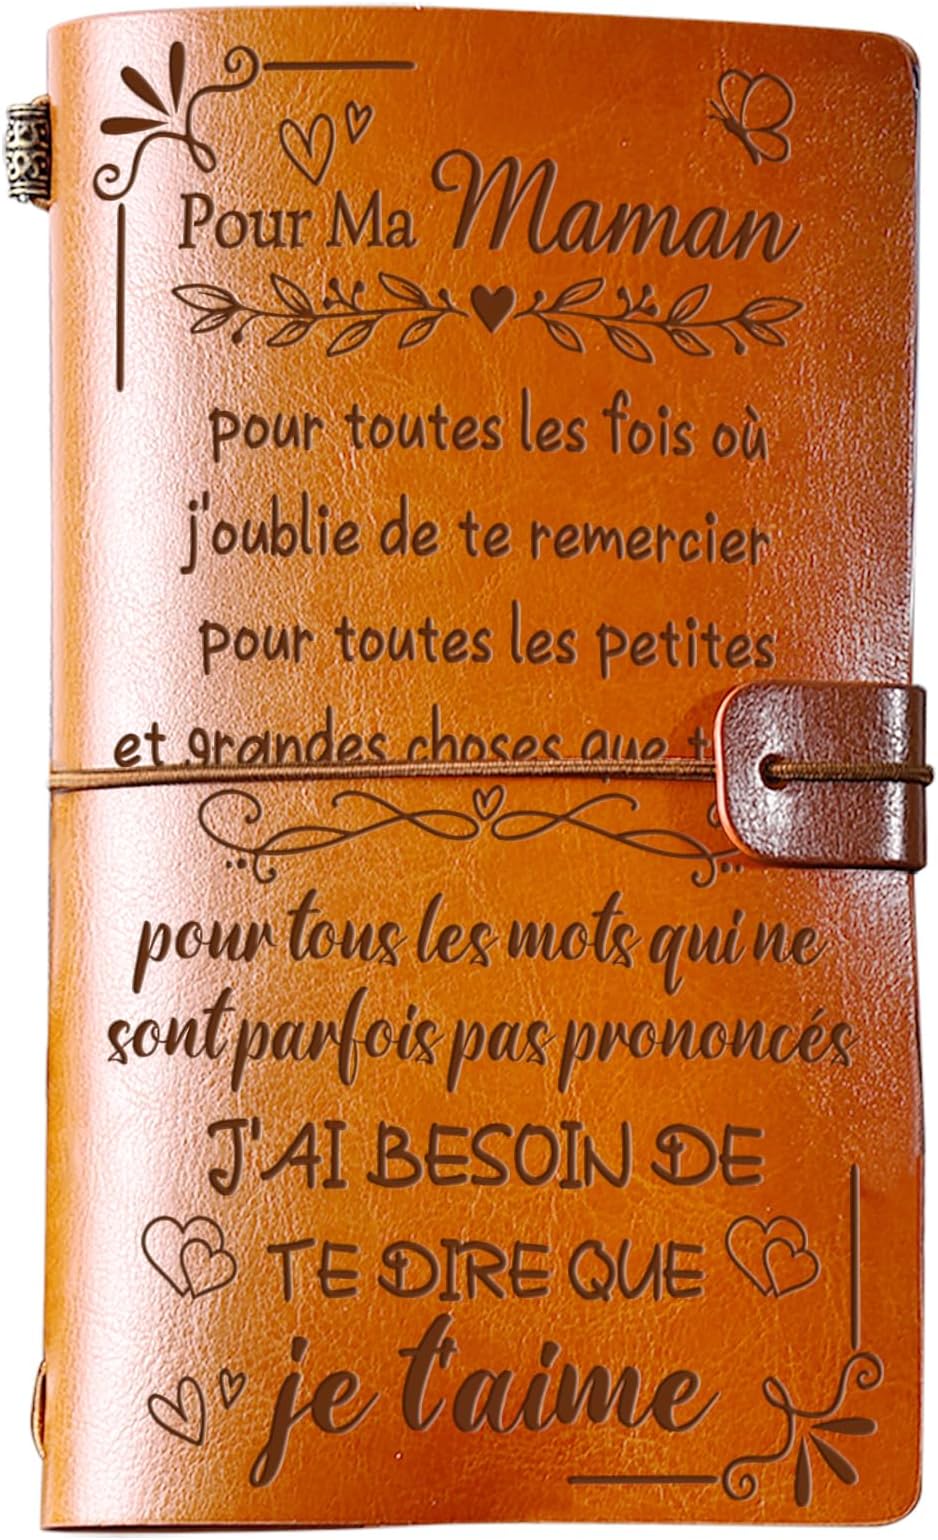 Pour Ma Maman
pour toutes les fois où
j'oublie de te remercier
pour toutes les petites
et grandes choses que
pour tous les mots qui ne
sont parfois pas prononcés
J'AI BESOIN DE
TE DIRE QUE
je t'aime